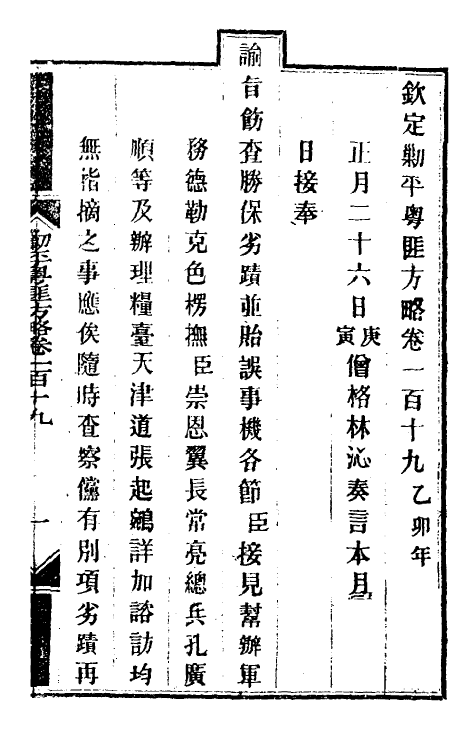 欽定勦平粵匪方略卷一百十九乙卯年
正月二十六日庚寅僧格林沁奏言本月
日接奉
諭旨飭查勝保劣蹟並貽誤事機各節臣接見幫辦軍
務德勒克色楞撫臣崇恩翼長常亮總兵孔廣
順等及辦理糧臺天津道張起鵷詳加諮訪均
無指摘之事應俟隨時查察儻有別項劣蹟再
勦平粵匪方略卷一百十九
一